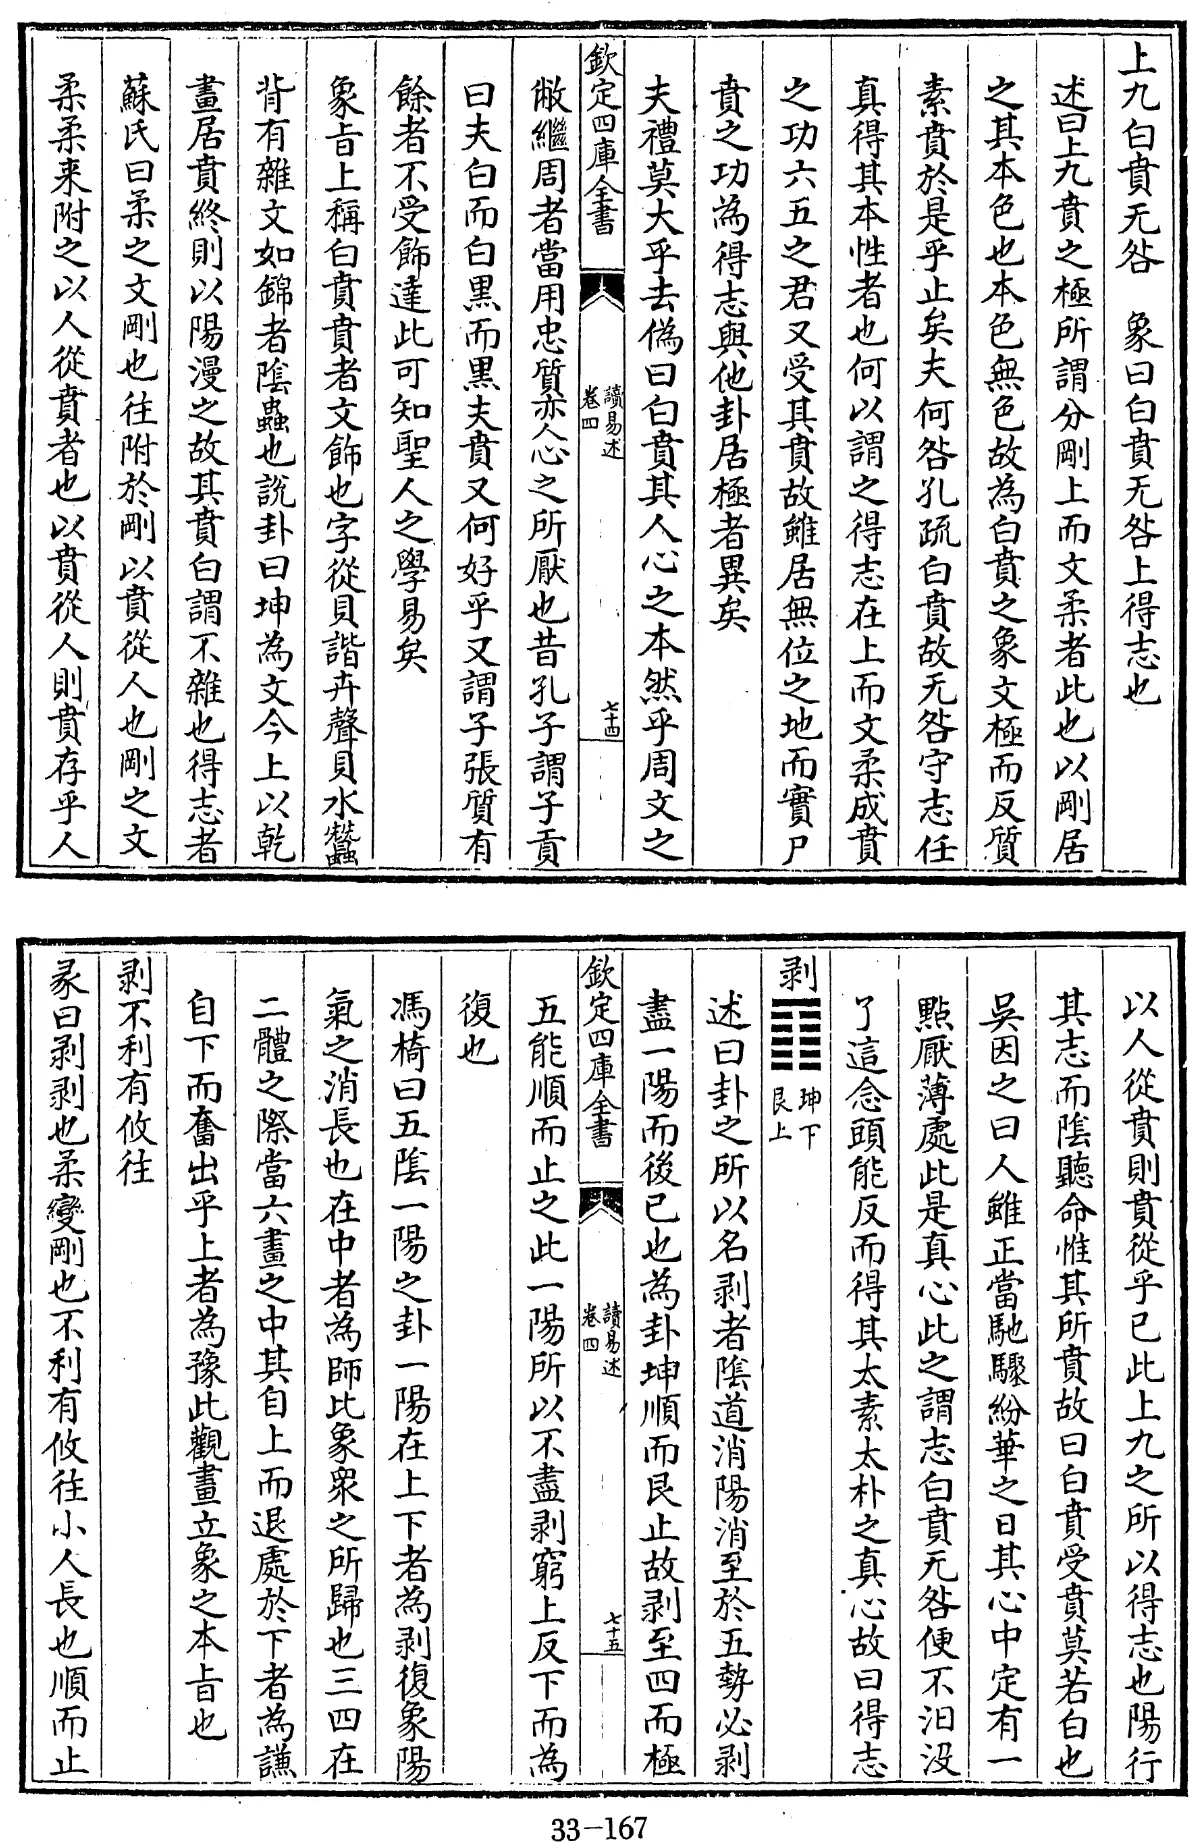 上九白賁无咎　象曰白賁无咎上得志也
述曰上九賁之極所謂分剛上而文柔者此也以剛居
之其本色也本色無色故為白賁之象文極而反質
素賁於是乎止矣夫何咎孔疏白賁故无咎守志任
真得其本性者也何以謂之得志在上而文柔成賁
之功六五之君又受其賁故雖居無位之地而實尸
賁之功為得志與他卦居極者異矣
夫禮莫大乎去偽曰白賁其人心之本然乎周文之
欽定四庫全書
讀易述
卷四
七十四
敝繼周者當用忠質亦人心之所厭也昔孔子謂子貢
曰夫白而白黑而黑夫賁又何好乎又謂子張質有
餘者不受飾達此可知聖人之學易矣
象旨上稱白賁賁者文飾也字從貝諧卉聲貝水蟲
背有雜文如錦者陰蟲也說卦曰坤為文今上以乾
畫居賁終則以陽漫之故其賁白謂不雜也得志者
蘇氏曰柔之文剛也往附於剛以賁從人也剛之文
柔柔来附之以人從賁者也以賁從人則賁存乎人
以人從賁則賁從乎已此上九之所以得志也陽行
其志而陰聽命惟其所賁故曰白賁受賁莫若白也
吳因之曰人雖正當馳驟紛華之日其心中定有一
點厭薄處此是真心此之謂志白賁无咎便不汨沒
了這念頭能反而得其太素太朴之真心故曰得志
剥䷖坤下艮上
述曰卦之所以名剥者陰道消陽消至於五勢必剥
盡一陽而後已也為卦坤順而艮止故剥至四而極
欽定四庫全書
讀易述
卷四
七十五
五能順而止之此一陽所以不盡剥窮上反下而為
復也
馮椅曰五陰一陽之卦一陽在上下者為剥復象陽
氣之消長也在中者為師比象衆之所歸也三四在
二體之際當六畫之中其自上而退處於下者為謙
自下而奮出乎上者為豫此觀畫立象之本旨也
剥不利有攸往
彖曰剥剥也柔變剛也不利有攸往小人長也順而止
33-167